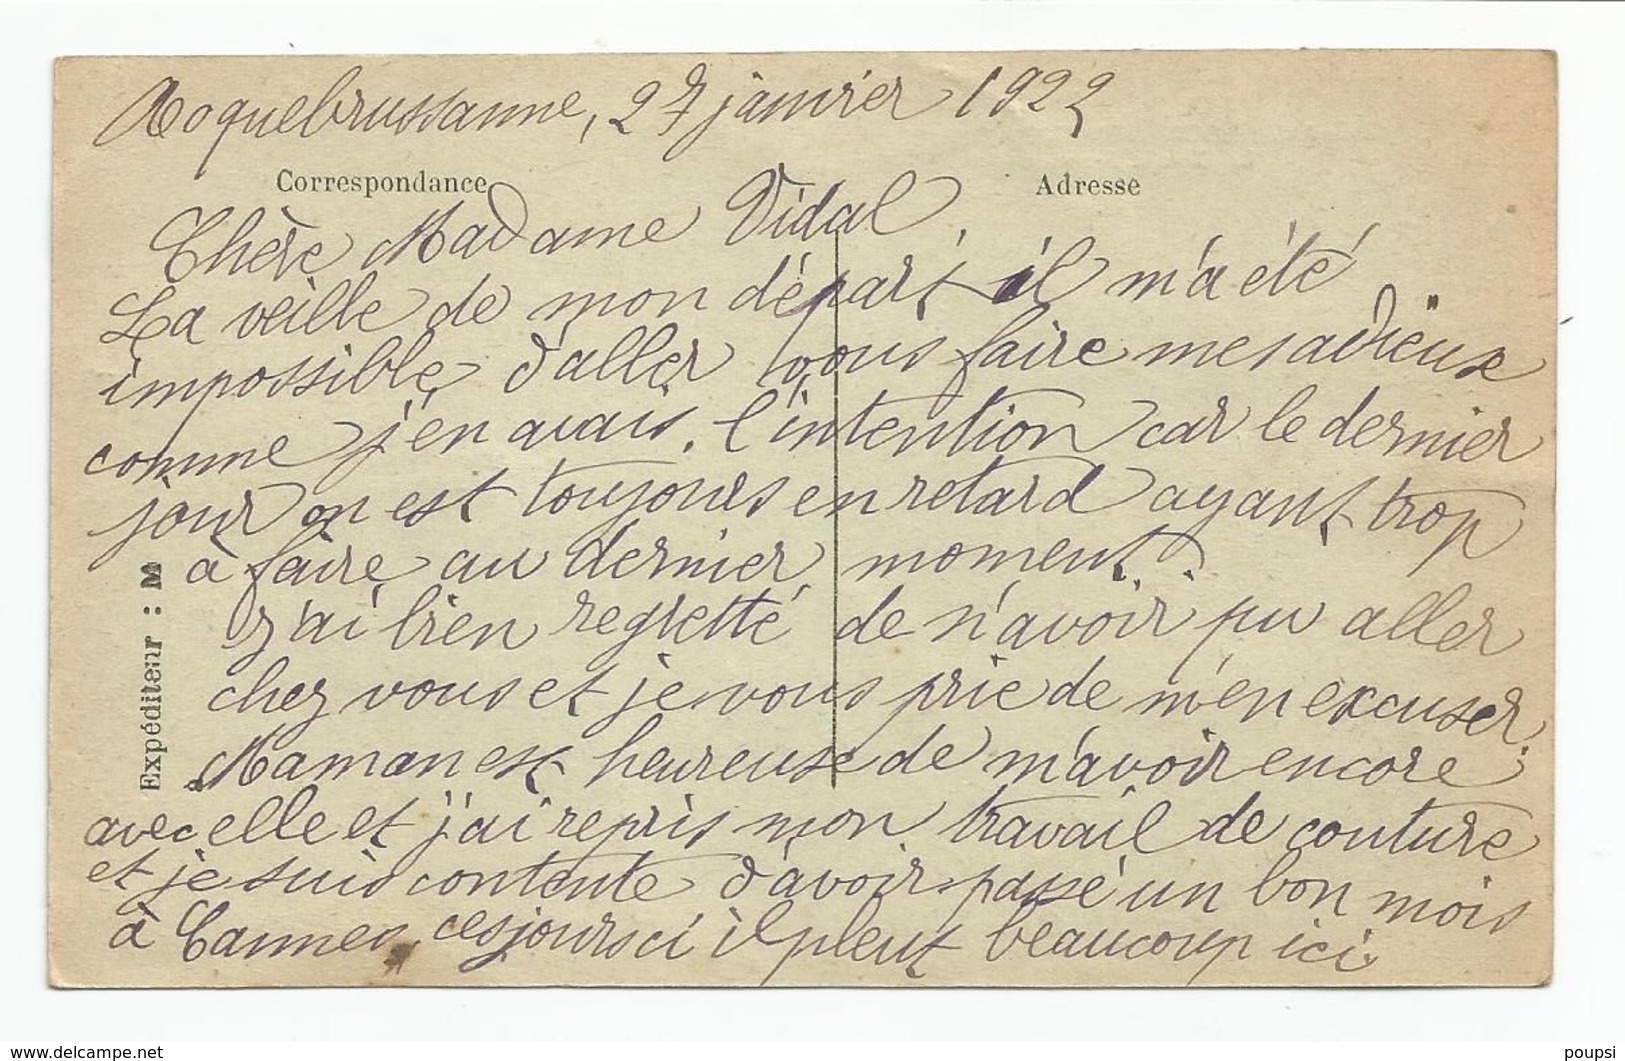 Roquebrussanne, 27 janvier 1922
Correspondance
Adresse
Chère Madame Vidal,
La veille de mon départ il m'a été
impossible d'aller vous faire mes adieux
comme j'en avais l'intention car le dernier
jour on est toujours en retard ayant trop
à faire au dernier moment.
J'ai bien regretté de n'avoir pu aller
chez vous et je vous prie de m'en excuser.
Maman est heureuse de m'avoir encore
avec elle et j'ai repris mon travail de couture
et je suis contente d'avoir passé un bon mois
à Cannes, ces jours ci il pleut beaucoup ici.
Expéditeur : M
www.delcampe.net
poupsi